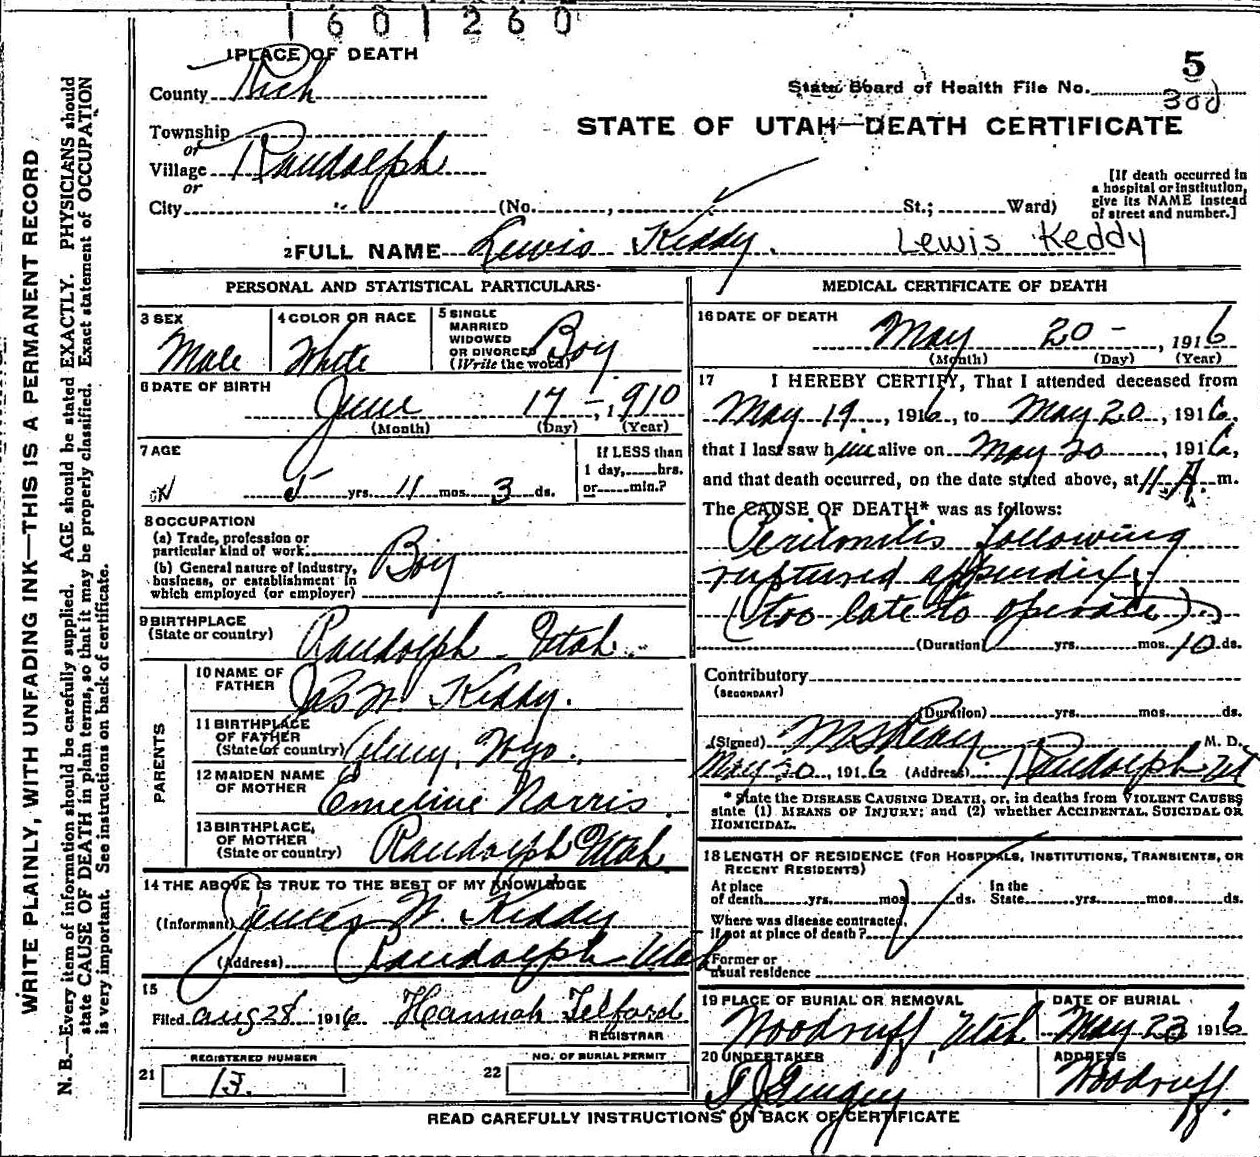 1601260
1 PLACE OF DEATH
County Rich
Township
or
Village Randolph
or
City (No. , St.; Ward)
5
State Board of Health File No. 300
STATE OF UTAH—DEATH CERTIFICATE
[If death occurred in
a hospital or institution,
give its NAME instead
of street and number.]
2 FULL NAME Lewis Keddy. Lewis Keddy
PERSONAL AND STATISTICAL PARTICULARS
3 SEX
Male
4 COLOR OR RACE
White
5 SINGLE
MARRIED
WIDOWED
OR DIVORCED
(Write the word)
Boy
6 DATE OF BIRTH
June 17 -, 1910
(Month) (Day) (Year)
7 AGE
5 yrs. 11 mos. 3 ds.
If LESS than
1 day, hrs.
or min.?
8 OCCUPATION
(a) Trade, profession or
particular kind of work
(b) General nature of industry,
business, or establishment in
which employed (or employer)
Boy
9 BIRTHPLACE
(State or country) Randolph - Utah.
PARENTS
10 NAME OF
FATHER Jas W. Keddy.
11 BIRTHPLACE
OF FATHER
(State or country) Wyo.
12 MAIDEN NAME
OF MOTHER Emeline Norris
13 BIRTHPLACE,
OF MOTHER
(State or country) Randolph Utah.
14 THE ABOVE IS TRUE TO THE BEST OF MY KNOWLEDGE
(Informant) James W. Keddy
(Address) Randolph Utah
15
Filed Aug 28 1916 Hannah Telford
REGISTRAR
REGISTERED NUMBER
21 13.
NO. OF BURIAL PERMIT
22
MEDICAL CERTIFICATE OF DEATH
16 DATE OF DEATH
May 20 - , 1916
(Month) (Day) (Year)
17 I HEREBY CERTIFY, That I attended deceased from
May 19, 1916, to May 20, 1916,
that I last saw him alive on May 20, 1916,
and that death occurred, on the date stated above, at 11 A. m.
The CAUSE OF DEATH* was as follows:
Peritonitis following
ruptured appendix,
(too late to operate)
(Duration) yrs. mos. 10 ds.
Contributory
(SECONDARY)
(Duration) yrs. mos. ds.
(Signed) M. D.
May 20, 1916 (Address) Randolph Ut
* State the DISEASE CAUSING DEATH, or, in deaths from VIOLENT CAUSES
state (1) MEANS OF INJURY; and (2) whether ACCIDENTAL, SUICIDAL OR
HOMICIDAL.
18 LENGTH OF RESIDENCE (FOR HOSPITALS, INSTITUTIONS, TRANSIENTS, OR
RECENT RESIDENTS)
At place
of death yrs. mos. ds.
In the
State yrs. mos. ds.
Where was disease contracted,
if not at place of death?
Former or
usual residence
19 PLACE OF BURIAL OR REMOVAL
Woodruff, Utah
DATE OF BURIAL
May 23 1916
20 UNDERTAKER
ADDRESS
Woodruff.
READ CAREFULLY INSTRUCTIONS ON BACK OF CERTIFICATE
WRITE PLAINLY, WITH UNFADING INK—THIS IS A PERMANENT RECORD
N. B.—Every item of information should be carefully supplied. AGE should be stated EXACTLY. PHYSICIANS should
state CAUSE OF DEATH in plain terms, so that it may be properly classified. Exact statement of OCCUPATION
is very important. See instructions on back of certificate.